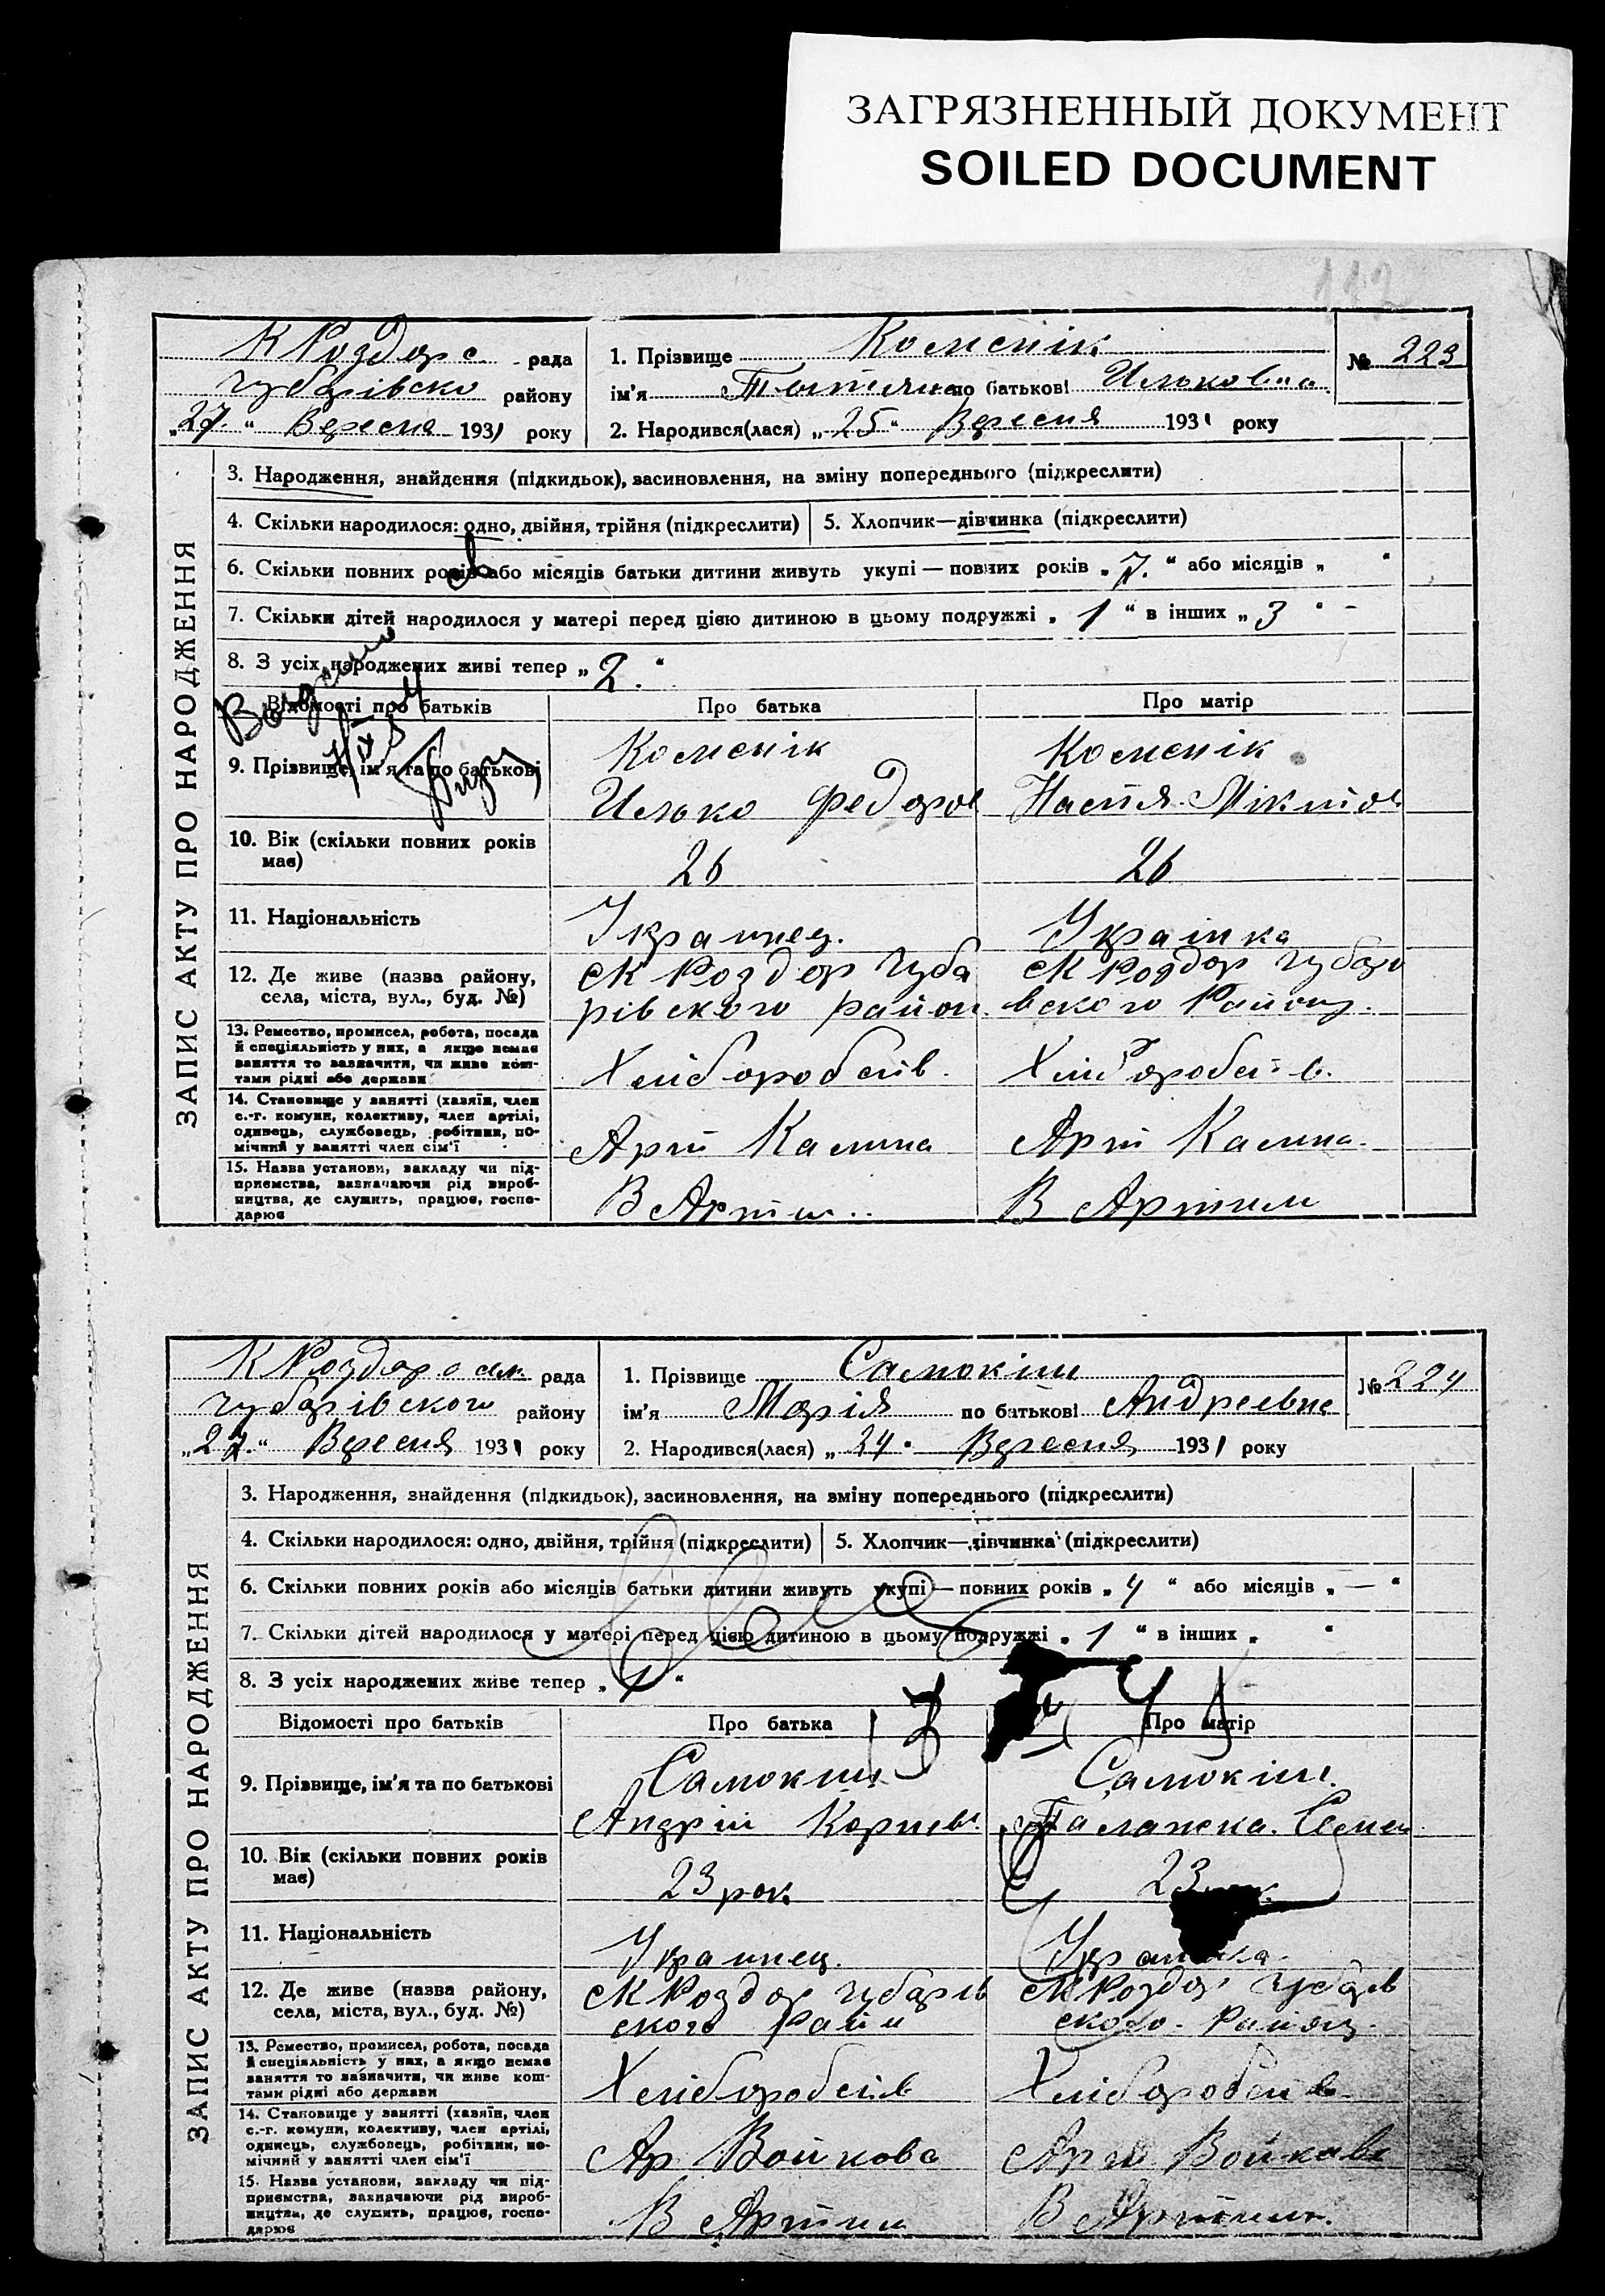 ЗАГРЯЗНЕННЫЙ ДОКУМЕНТ
SOILED DOCUMENT
112
К Роздор с. рада
Чубарівско району
„27.“ Вересня 1931 року
1. Прізвище Коменік
ім'я Тытяна по батькові Ильковна
2. Народився(лася) „25“ Вересня 1931 року
№ 223
ЗАПИС АКТУ ПРО НАРОДЖЕННЯ
3. Народження, знайдення (підкидьок), засиновлення, на зміну попереднього (підкреслити)
4. Скільки народилося: одно, двійня, трійня (підкреслити)
5. Хлопчик—дівчинка (підкреслити)
6. Скільки повних років або місяців батьки дитини живуть укупі — повних років „7.“ або місяців „ “
7. Скільки дітей народилося у матері перед цією дитиною в цьому подружжі „1“ в інших „3“ -
8. З усіх народжених живі тепер „2.“
Відомості про батьків
Про батька
Про матір
9. Прізвище, ім'я та по батькові
Коменік
Илько Федоров
Коменік
Настя
10. Вік (скільки повних років має)
26
26
11. Національність
Украинец.
Українка
12. Де живе (назва району, села, міста, вул., буд. №)
с К Роздор Чуба
рівского район.
с К Роздор Чубарі
вского Району.
13. Ремество, промисел, робота, посада й спеціяльність у них, а якщо немає заняття то зазначити, чи живе коштами рідні або держави
Хліборобств.
Хліборобств.
14. Становище у занятті (хазяїн, член с.-г. комуни, колективу, член артілі, одинець, службовець, робітник, помічний у занятті член сім'ї
Арт Калина
Арт Калина.
15. Назва установи, закладу чи підприємства, зазначаючи рід виробництва, де служить, працює, господарює
В Артил..
В Артили
К Роздор с рада
Чубарівского району
„27.“ Вересня 1931 року
1. Прізвище Самокіш
ім'я Марія по батькові Андреевна
2. Народився(лася) „24“ Вересня 1931 року
№ 224
ЗАПИС АКТУ ПРО НАРОДЖЕННЯ
3. Народження, знайдення (підкидьок), засиновлення, на зміну попереднього (підкреслити)
4. Скільки народилося: одно, двійня, трійня (підкреслити)
5. Хлопчик—дівчинка (підкреслити)
6. Скільки повних років або місяців батьки дитини живуть укупі — повних років „4“ або місяців „—“
7. Скільки дітей народилося у матері перед цією дитиною в цьому подружжі „1“ в інших „ “
8. З усіх народжених живе тепер „1“
Відомості про батьків
Про батька
Про матір
9. Прізвище, ім'я та по батькові
Самокиш
Андрій
Самокіш.
Палажка. Семен
10. Вік (скільки повних років має)
23 рок.
23
11. Національність
Украинец.
12. Де живе (назва району, села, міста, вул., буд. №)
с К Роздор Чубарів
ского Райн
с К Роздор Чубарів
ского. Району.
13. Ремество, промисел, робота, посада й спеціяльність у них, а якщо немає заняття то зазначити, чи живе коштами рідні або держави
Хліборобств
Хліборобств
14. Становище у занятті (хазяїн, член с.-г. комуни, колективу, член артілі, одинець, службовець, робітник, помічний у занятті член сім'ї
Ар Войкова
Арт Войкова
15. Назва установи, закладу чи підприємства, зазначаючи рід виробництва, де служить, працює, господарює
В Артили
В Артили.